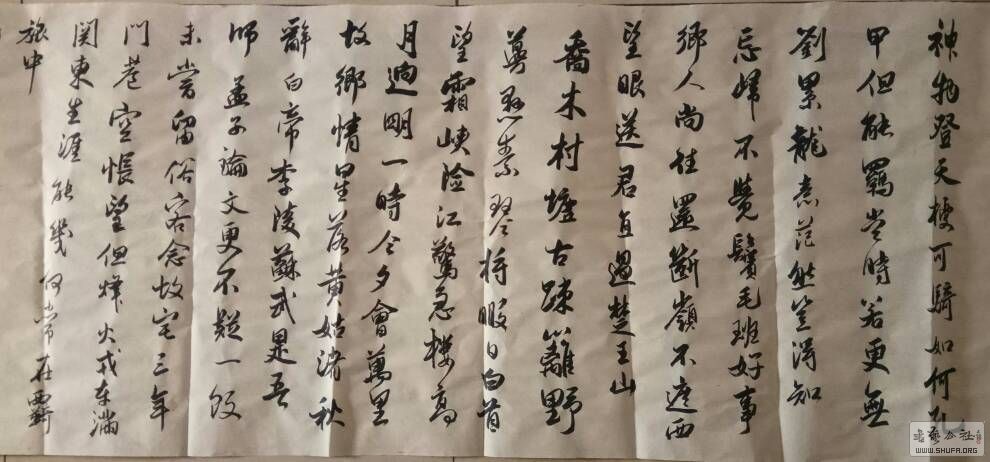 神物登天擾可騎如何孔
甲但能羈當時若更無
劉累龍意茫然豈得知
忘歸不覺鬢毛班好事
鄉人尚往還斷嶺不遮西
望眼送君直過楚王山
喬木村墟古疎籬野
蔓懸素琴將暇日白首
望霜峽險江驚急樓高
月迥明一時今夕會萬里
故鄉情星落黃姑渚秋
辭白帝李陵蘇武是吾
師孟子論文更不疑一飯
未嘗留俗客念故宅三年
門巷空悵望但烽火戎車滿
関東生涯能幾何常在羈
旅中
公社
WWW.SHUFA.ORG